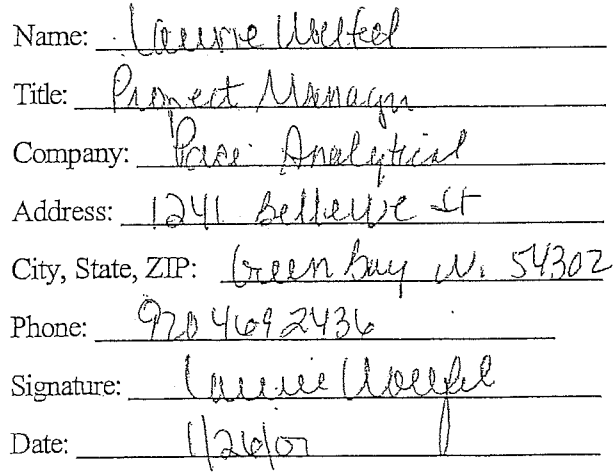 Name: Laurie Woelfel
Title: Project Manager
Company: Pace Analytical
Address: 1241 Bellevue St
City, State, ZIP: Green Bay Wi 54302
Phone: 920 469 2436
Signature: Laurie Woelfel
Date: 1/26/07